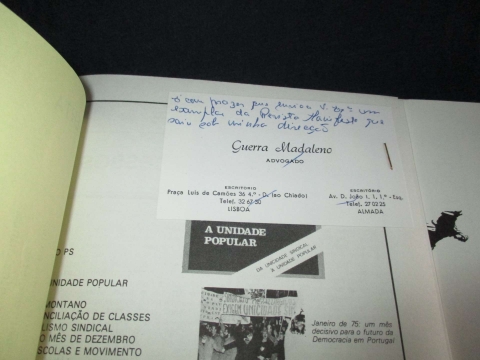 É com prazer que envio a V. Exª um
exemplar da Revista Manifesto que
saiu sob minha direcção
Guerra Madaleno
ADVOGADO
ESCRITÓRIO
Praça Luís de Camões 36 4.º - D. (ao Chiado)
Telef. 32 67 50
LISBOA
ESCRITÓRIO
Av. D. João I, 1, 1.º - Esq.
Telef. 27 02 25
ALMADA
A UNIDADE
POPULAR
DA UNICIDADE SINDICAL
À UNIDADE POPULAR
O PS
NIDADE POPULAR
MONTANO
NCILIAÇÃO DE CLASSES
LISMO SINDICAL
O MÊS DE DEZEMBRO
SCOLAS E MOVIMENTO
EXIGEM UNICIDADE
Janeiro de 75: um mês
decisivo para o futuro da
Democracia em Portugal